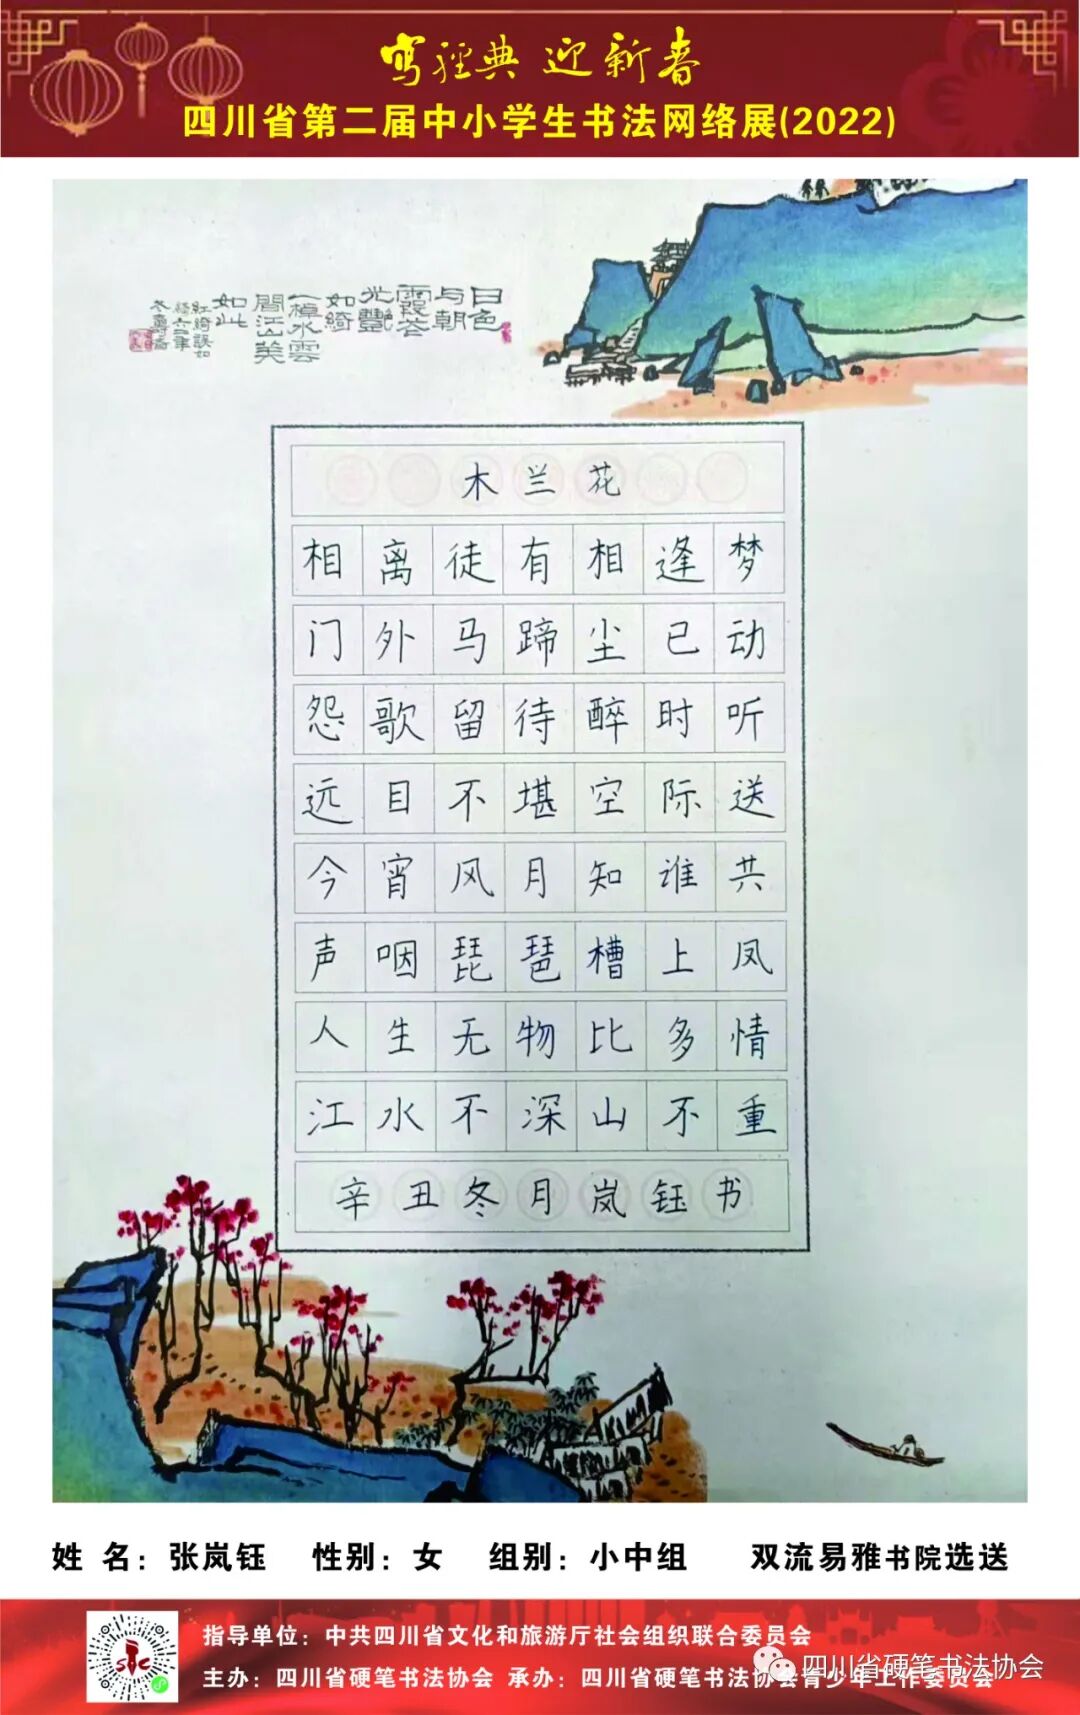 写经典 迎新春
四川省第二届中小学生书法网络展(2022)
日色
与朝
霞衣
光艷
如綺
一棹水雲
間江山美
如此
木兰花
相离徒有相逢梦
门外马蹄尘已动
怨歌留待醉时听
远目不堪空际送
今宵风月知谁共
声咽琵琶槽上凤
人生无物比多情
江水不深山不重
辛丑冬月岚钰书
姓 名：张岚钰 性别：女 组别：小中组 双流易雅书院选送
指导单位：中共四川省文化和旅游厅社会组织联合委员会
主办：四川省硬笔书法协会 承办：四川省硬笔书法协会青少年工作委员会
四川省硬笔书法协会